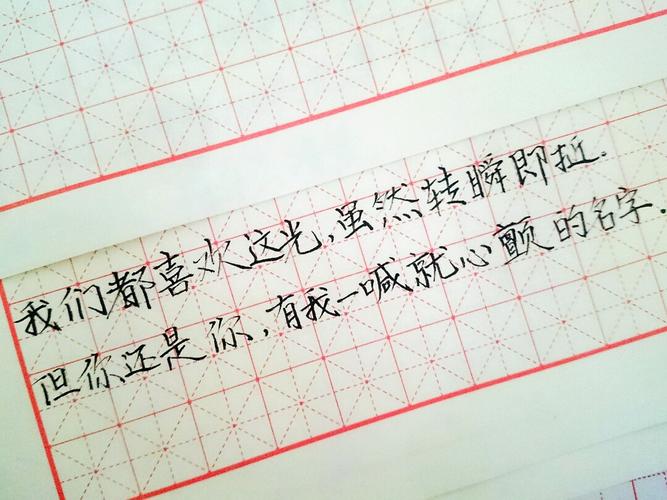 我们都喜欢这光,虽然转瞬即逝.
但你还是你,有我一喊就心颤的名字.